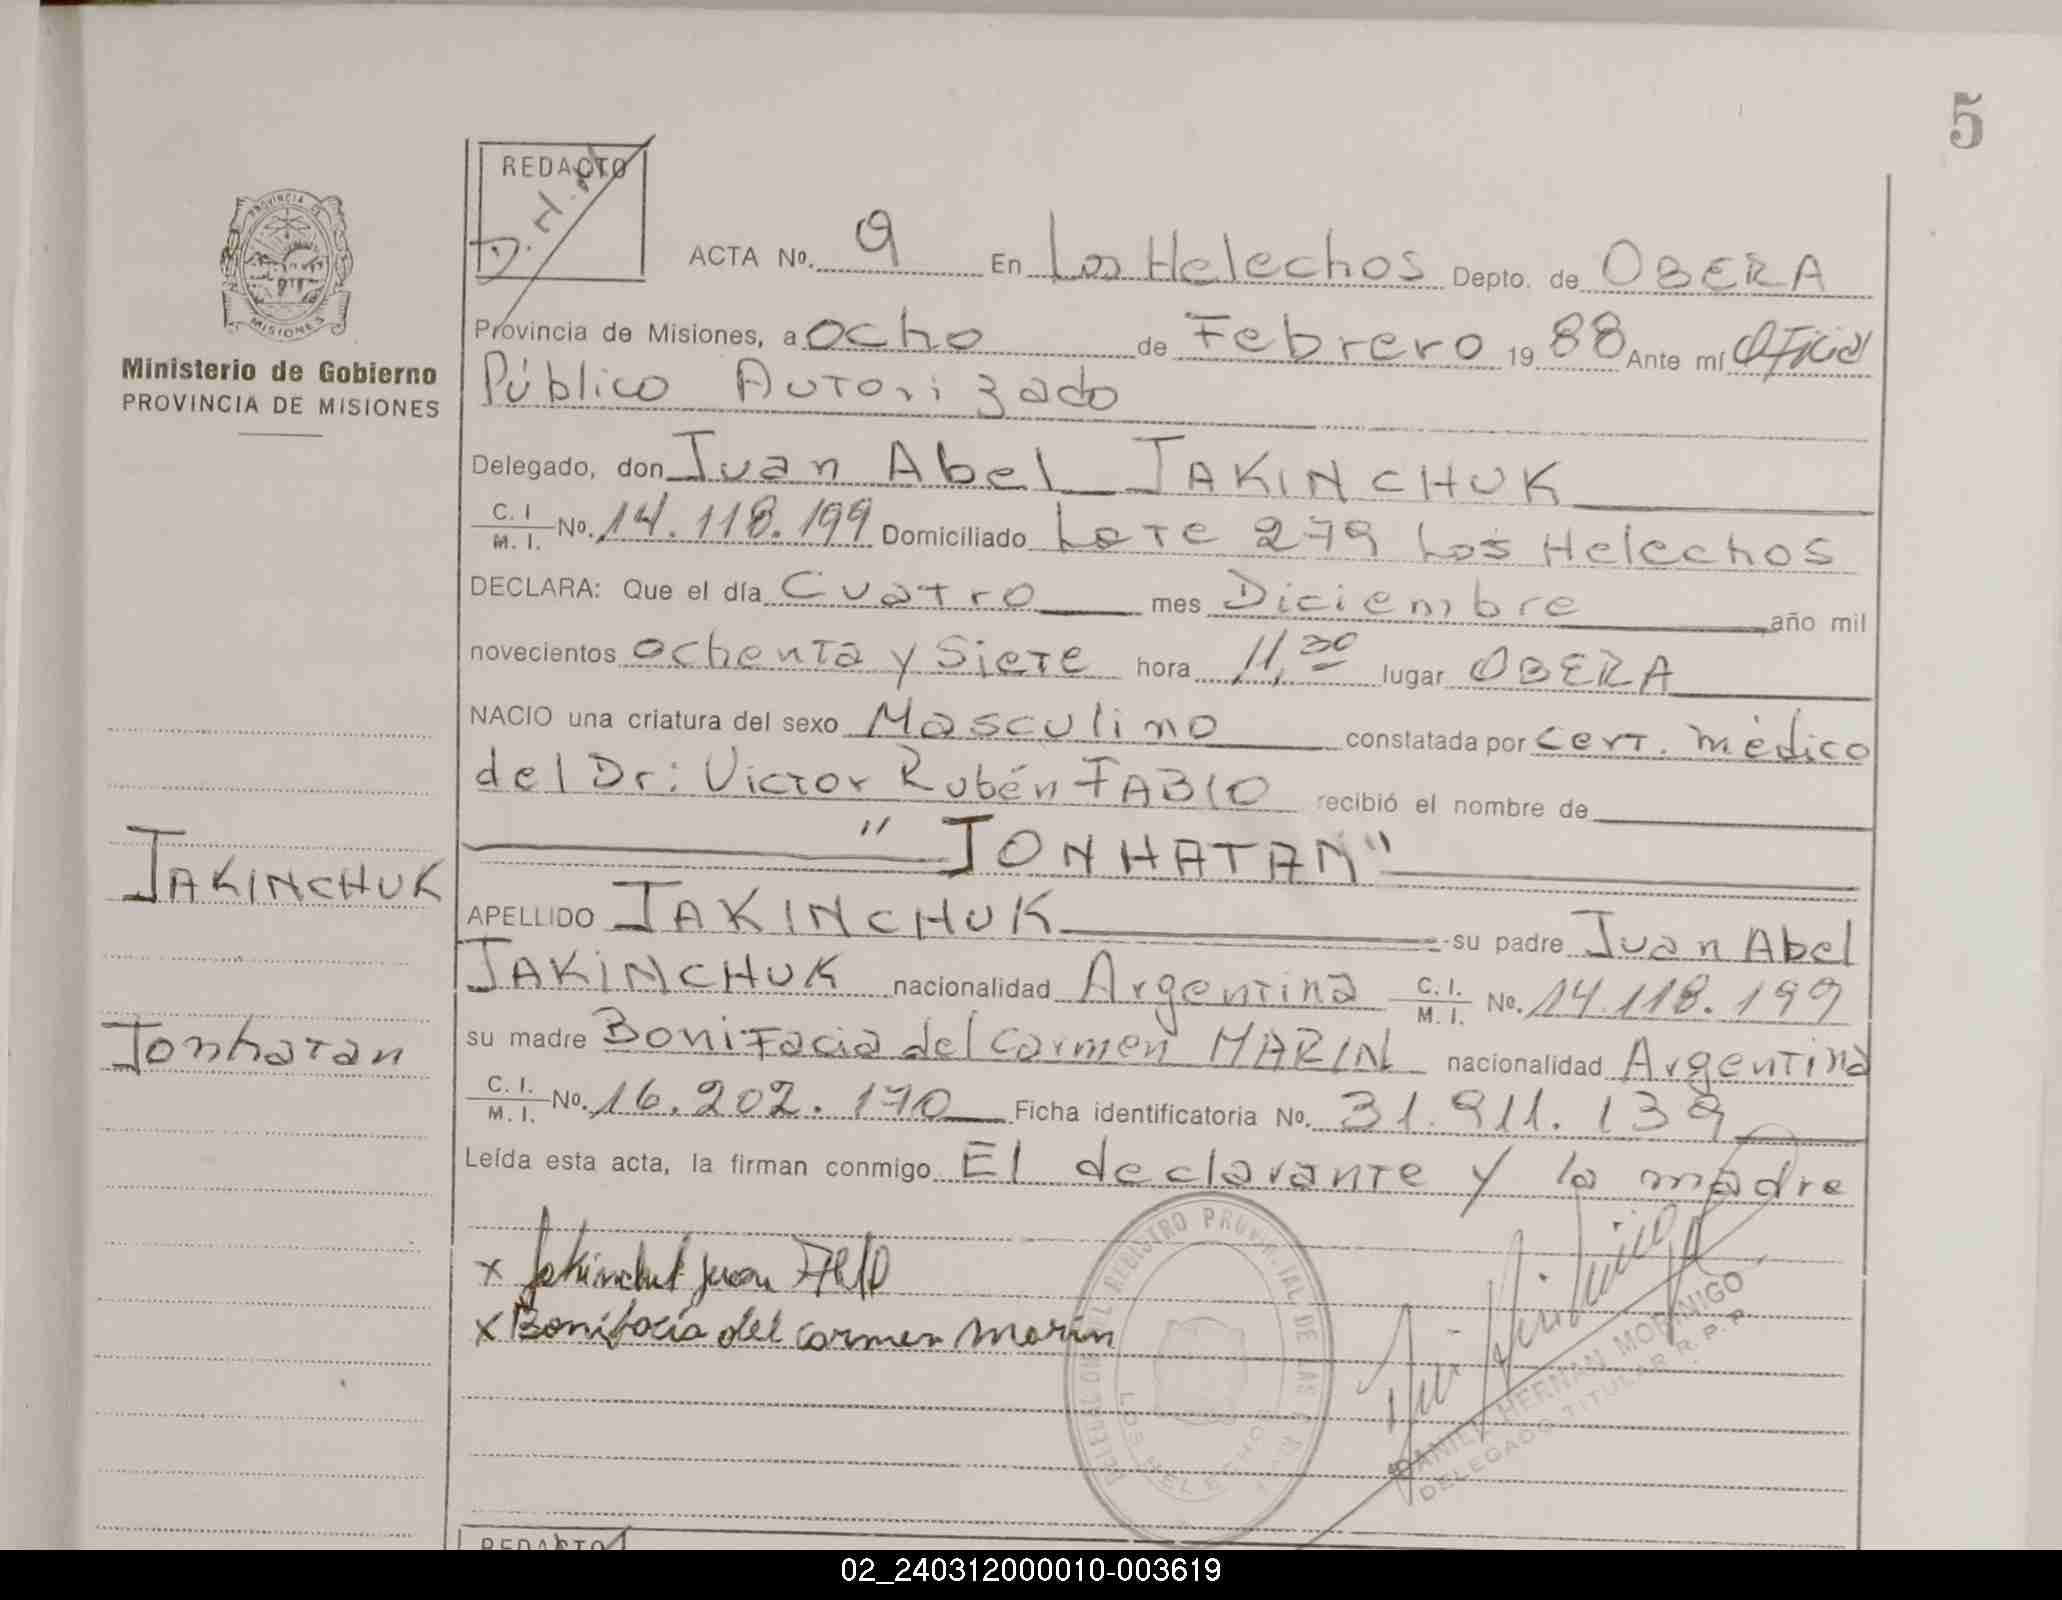 5
REDACTO
D.H.M
ACTA No. 9 En Los Helechos Depto. de OBERA
Provincia de Misiones, a ocho de Febrero 1988 Ante mí Oficial
Público Autorizado
Delegado, don Juan Abel JAKINCHUK
C. I. M. I. No. 14.118.199 Domiciliado Lote 279 Los Helechos
DECLARA: Que el día Cuatro mes Diciembre año mil
novecientos ochenta y Siete hora 11,30 lugar OBERA
NACIO una criatura del sexo Masculino constatada por cert. médico
del Dr: Victor Rubén FABIO recibió el nombre de
"JONHATAN"
APELLIDO JAKINCHUK su padre Juan Abel
JAKINCHUK nacionalidad Argentina C. I. M. I. No. 14.118.199
su madre Bonifacia del Carmen MARIN nacionalidad Argentina
C. I. M. I. No. 16.202.170 Ficha identificatoria No. 31.911.139
Leída esta acta, la firman conmigo El declarante y la madre
x Jakinchuk Juan Abel
x Bonifacia del Carmen Marin
PROVINCIA DE MISIONES
Ministerio de Gobierno
PROVINCIA DE MISIONES
JAKINCHUK
Jonhatan
REGISTRO PROVINCIAL DE LAS
LOS HELECHOS
HERNAN MORINIGO
DELEGADO TITULAR R. P. P.
REDACTO
02_240312000010-003619